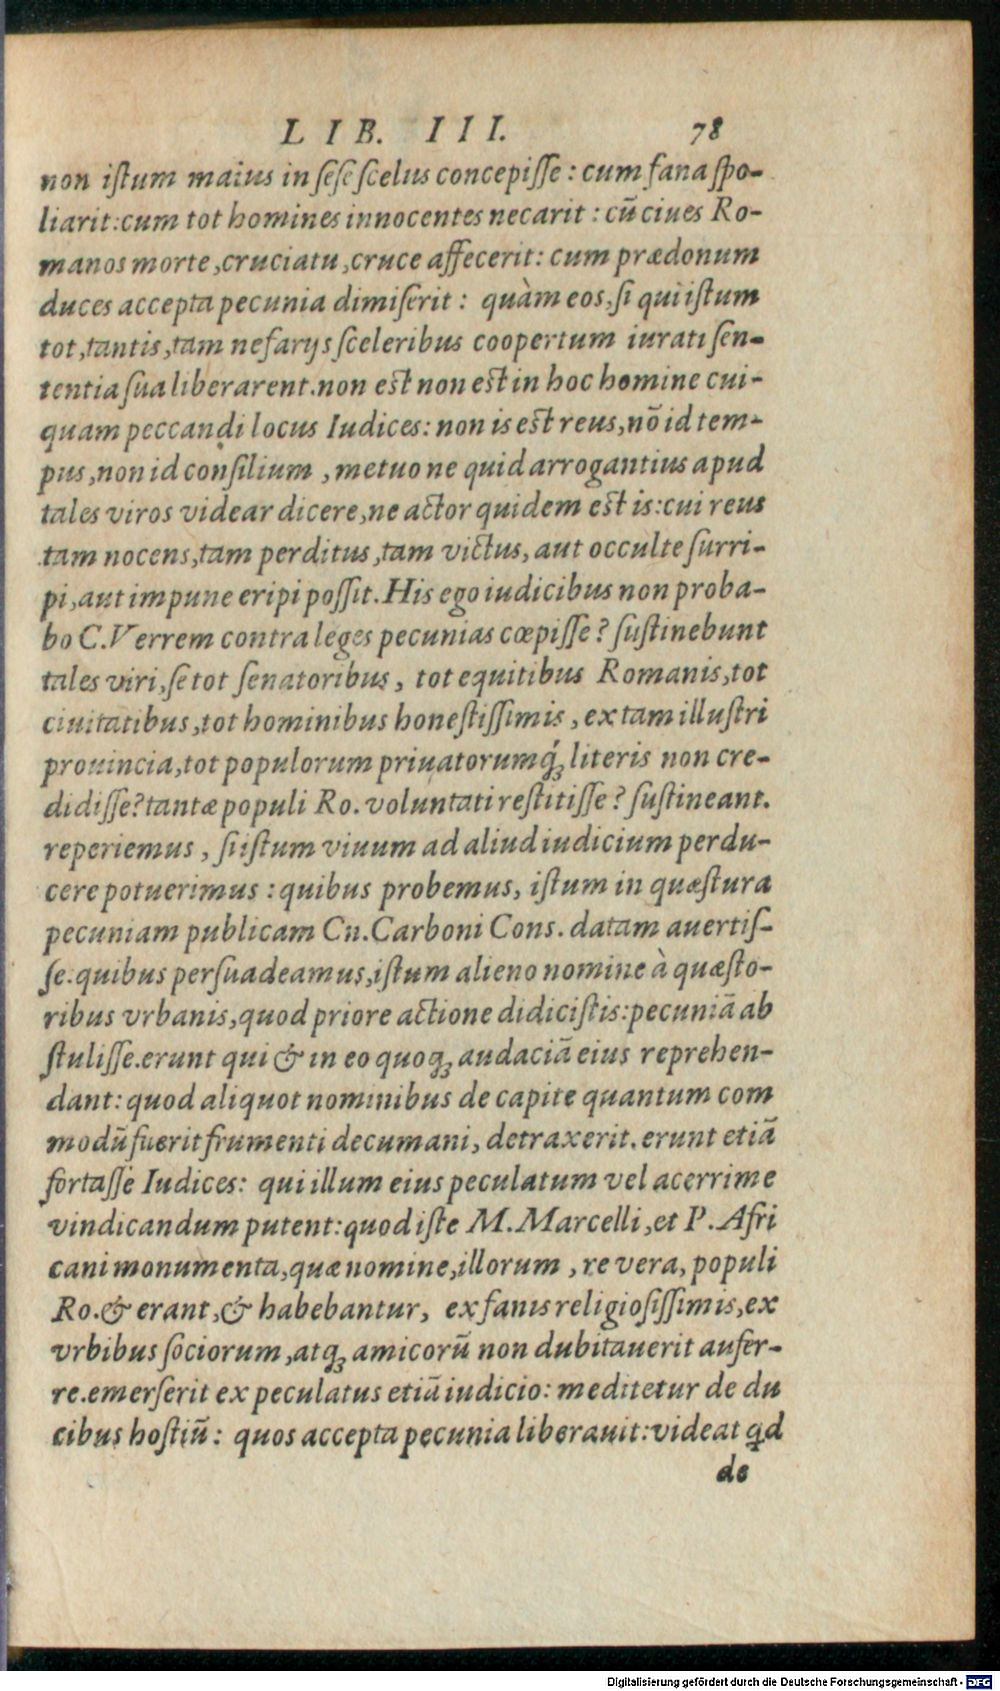 LIB. III. 78
non istum maius in sese scelus concepisse : cum fana spo-
liarit: cum tot homines innocentes necarit : cũ ciues Ro-
manos morte, cruciatu, cruce affecerit: cum prædonum
duces accepta pecunia dimiserit : quàm eos, si qui istum
tot, tantis, tam nefarijs sceleribus coopertum iurati sen-
tentia sua liberarent. non est non est in hoc homine cui-
quam peccandi locus Iudices: non is est reus, nõ id tem-
pus, non id consilium , metuo ne quid arrogantius apud
tales viros videar dicere, ne actor quidem est is: cui reus
tam nocens, tam perditus, tam victus, aut occulte surri-
pi, aut impune eripi possit. His ego iudicibus non proba-
bo C. Verrem contra leges pecunias cœpisse? sustinebunt
tales viri, se tot senatoribus, tot equitibus Romanis, tot
ciuitatibus, tot hominibus honestissimis, ex tam illustri
prouincia, tot populorum priuatorumq́ꝫ literis non cre-
didisse? tantæ populi Ro. voluntati restitisse? sustineant.
reperiemus , si istum viuum ad aliud iudicium perdu-
cere potuerimus : quibus probemus, istum in quæstura
pecuniam publicam Cn. Carboni Cons. datam auertis-
se. quibus persuadeamus, istum alieno nomine à quæsto-
ribus vrbanis, quod priore actione didicistis: pecuniã ab
stulisse. erunt qui & in eo quoqꝫ audaciã eius reprehen-
dant: quod aliquot nominibus de capite quantum com
modũ fuerit frumenti decumani, detraxerit. erunt etiã
fortasse Iudices: qui illum eius peculatum vel acerrime
vindicandum putent: quod iste M. Marcelli, et P. Afri
cani monumenta, quæ nomine, illorum , re vera, populi
Ro. & erant, & habebantur, ex fanis religiosissimis, ex
vrbibus sociorum, atqꝫ amicorũ non dubitauerit aufer-
re. emerserit ex peculatus etiã iudicio: meditetur de du
cibus hostiũ: quos accepta pecunia liberauit: videat qd
de
Digitalisierung gefördert durch die Deutsche Forschungsgemeinschaft - DFG